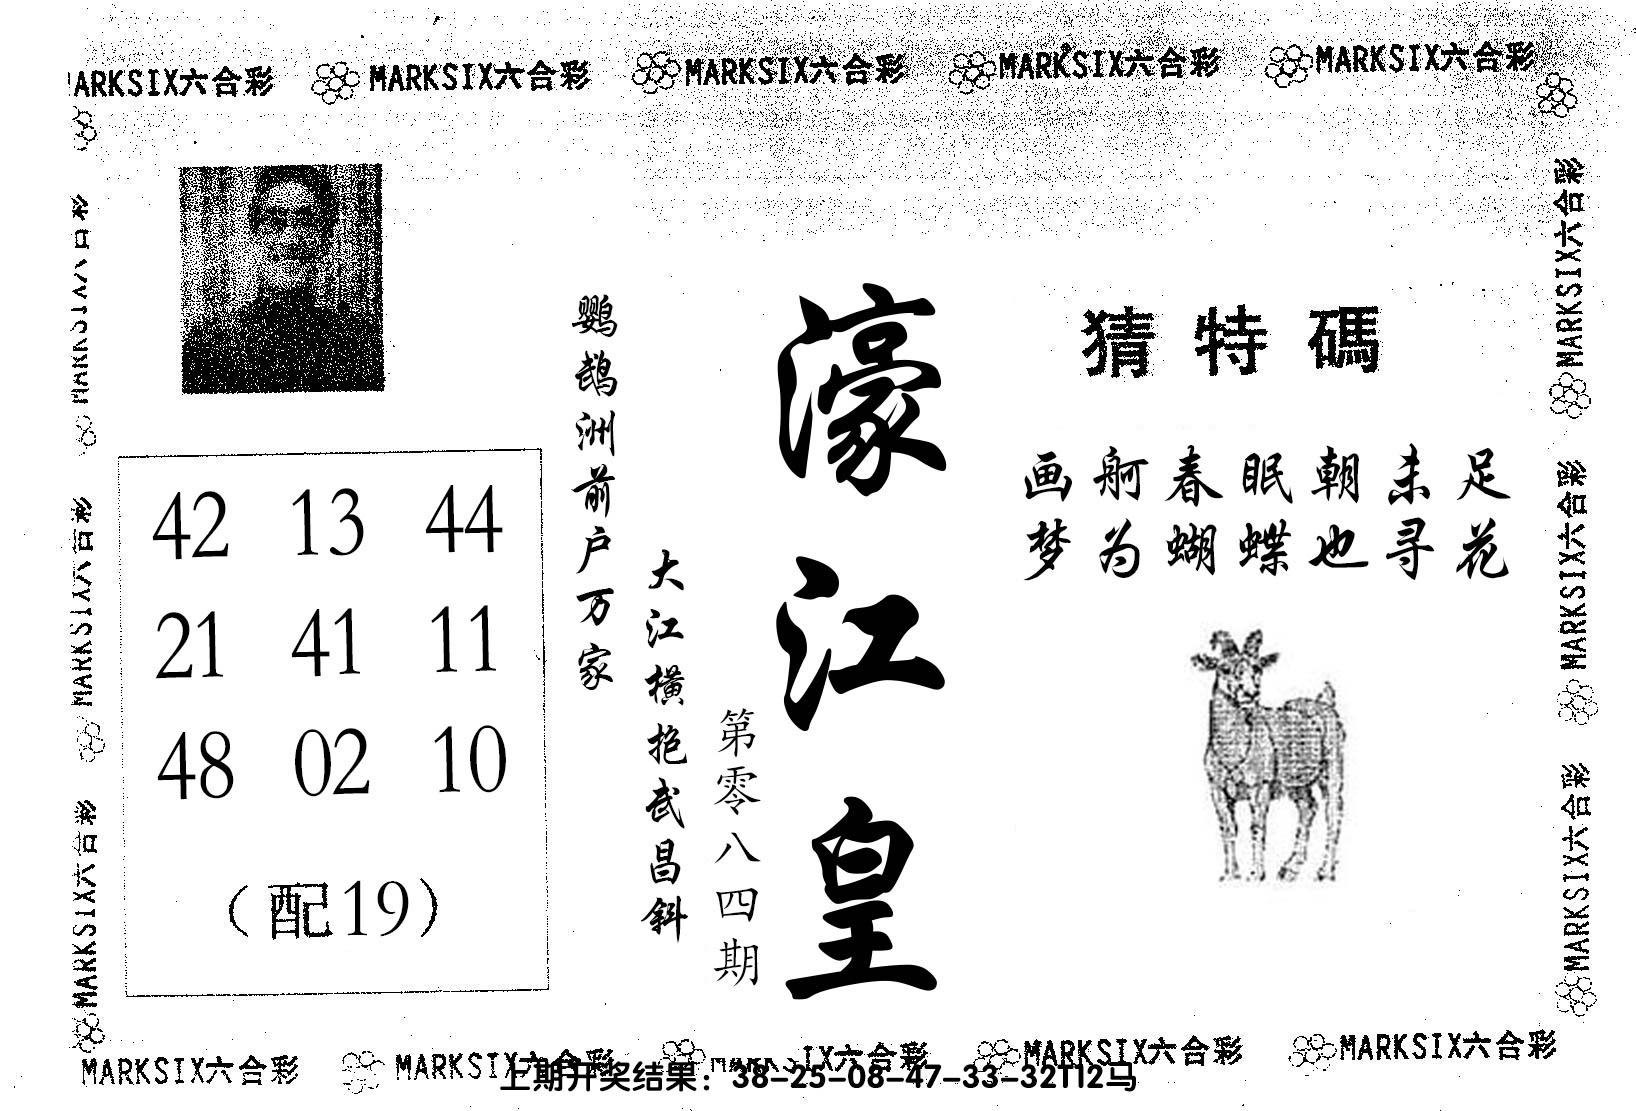 MARKSIX六合彩 MARKSIX六合彩 MARKSIX六合彩 MARKSIX六合彩 MARKSIX六合彩
MARKSIX六合彩
MARKSIX六合彩
MARKSIX六合彩
猜特碼
画舸春眠朝未足
梦为蝴蝶也寻花
濠江皇
第零八四期
大江横抱武昌斜
鹦鹉洲前户万家
42 13 44
21 41 11
48 02 10
(配19)
MARKSIX六合彩
MARKSIX六合彩
MARKSIX六合彩
MARKSIX六合彩 MARKSIX六合彩 MARKSIX六合彩 MARKSIX六合彩 MARKSIX六合彩
上期开奖结果：38-25-08-47-33-32T12马